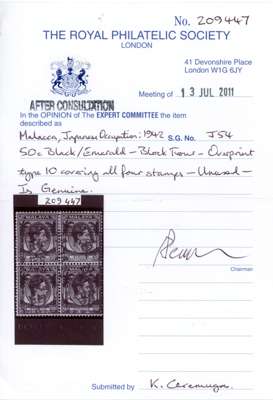 No. 209447
THE ROYAL PHILATELIC SOCIETY
LONDON
41 Devonshire Place
London W1G 6JY
Meeting of 13 JUL 2011
AFTER CONSULTATION
In the OPINION of The EXPERT COMMITTEE the item
described as
Malacca, Japanese Occupation: 1942 S.G. No. J54
50c Black/Emerald - Block Four - Overprint
type 10 covering all four stamps - Unused -
Is Genuine.
209 447
MALAYA MALAYA
Chairman
Submitted by K. Ceremuga